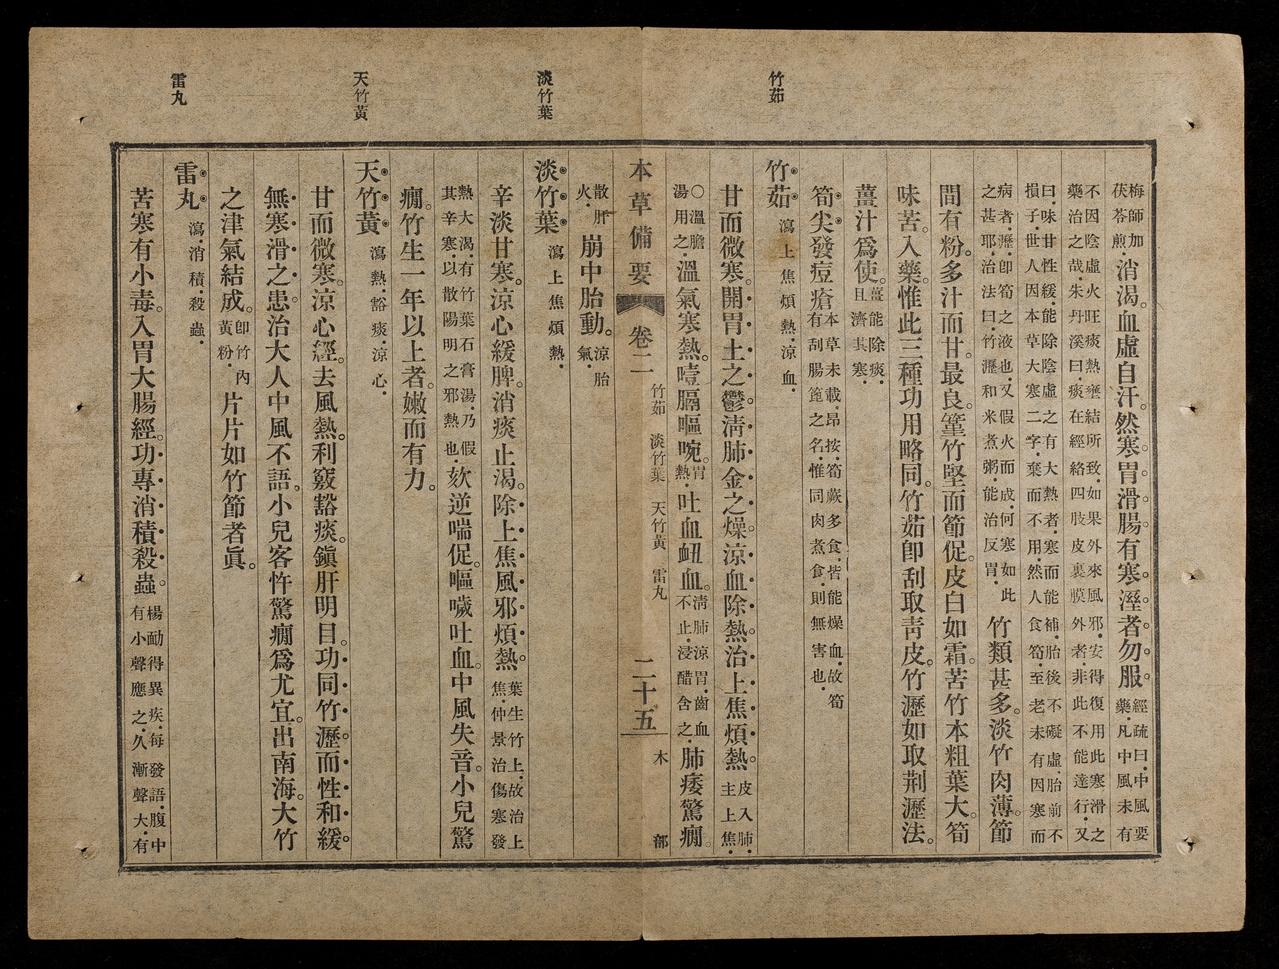 竹茹
淡竹葉
天竹黃
雷丸
梅師加茯苓煎.消渴。血虛自汗。然寒胃滑腸。有寒溼者勿服。經疏曰.中風要藥.凡中風未有
不因陰虛火旺痰熱壅結所致.如果外來風邪.安得復用此寒滑之藥治之哉.朱丹溪曰.痰在經絡四肢皮裏膜外者.非此不能達行.又
曰.味甘性緩.能除陰虛之有大熱者.寒而能補.胎後不礙虛.胎前不損子.世人因本草大寒二字.棄而不用.然人食筍至老.未有因寒而
病者.瀝.卽筍之液也.又假火而成.何寒如此之甚耶.治法曰.竹瀝和米煮粥.能治反胃.竹類甚多。淡竹肉薄。節
間有粉。多汁而甘。最良。篁竹堅而節促。皮白如霜。苦竹本粗葉大。筍
味苦。入藥惟此三種。功用略同。竹茹卽刮取靑皮。竹瀝如取荆瀝法。
薑汁爲使。薑能除痰.且濟其寒.
筍尖發痘瘡。本草未載.昂按.筍蕨多食.皆能燥血.故筍有刮腸篦之名.惟同肉煮食.則無害也.
竹茹 瀉上焦煩熱.涼血.
甘而微寒。開胃土之鬱。淸肺金之燥。涼血除熱。治上焦煩熱。皮入肺.主上焦.
○溫膽湯用之.溫氣寒熱。噎膈嘔啘。胃熱.吐血衄血。淸肺涼胃.齒血不止.浸醋含之.肺痿驚癇。
散肝火.崩中胎動。涼胎氣.
本草備要 卷二 竹茹 淡竹葉 天竹黃 雷丸 二十五 木部
淡竹葉 瀉上焦煩熱.
辛淡甘寒。涼心緩脾。消痰止渴。除上焦風邪煩熱。葉生竹上.故治上焦.仲景治傷寒發
熱大渴.有竹葉石膏湯.乃假其辛寒.以散陽明之邪熱也.欬逆喘促。嘔噦吐血。中風失音。小兒驚
癇。竹生一年以上者。嫩而有力。
天竹黃 瀉熱豁痰.涼心.
甘而微寒。涼心經。去風熱。利竅豁痰。鎭肝明目。功同竹瀝。而性和緩。
無寒滑之患。治大人中風不語。小兒客忤驚癇爲尤宜。出南海。大竹
之津氣結成。卽竹內黃粉.片片如竹節者眞。
雷丸 瀉.消積.殺蟲.
苦寒有小毒。入胃大腸經。功專消積殺蟲。楊勔得異疾.每發語.腹中有小聲應之.久漸聲大.有